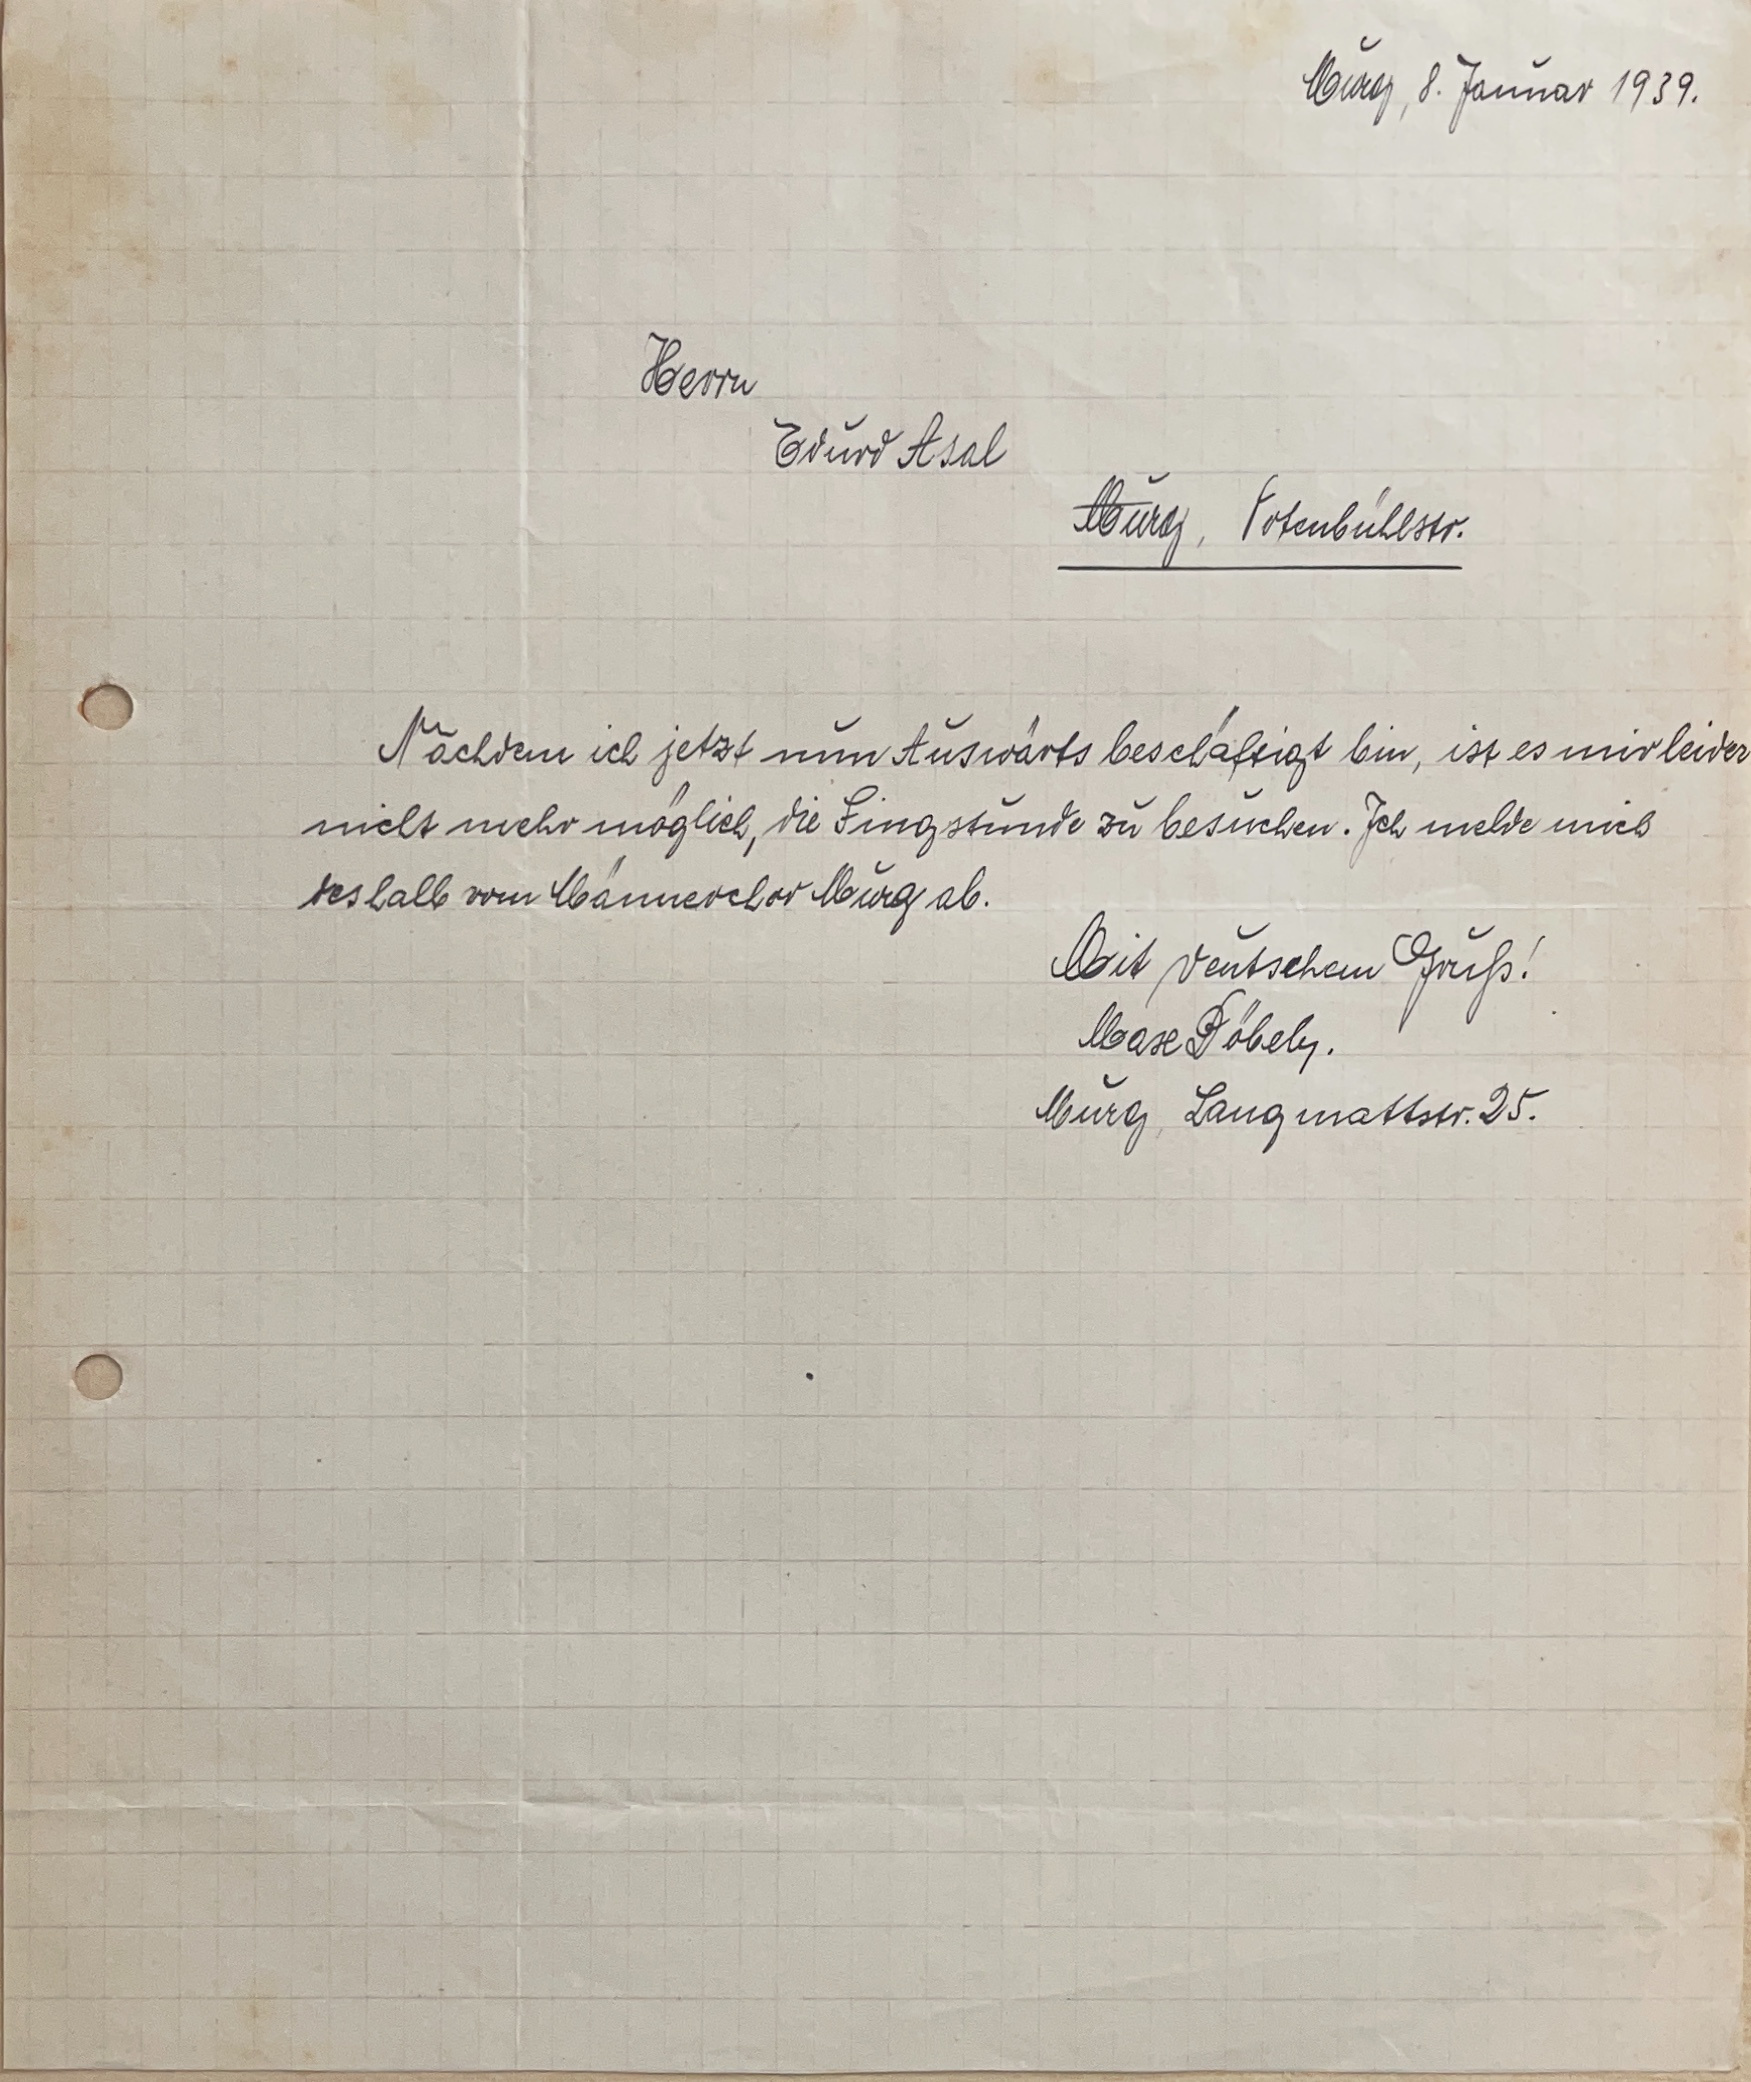 Murg, 8. Januar 1939.
Herrn
Edurd Asal
Murg, Totenbühlstr.
Nachdem ich jetzt nun Auswärts beschäftigt bin, ist es mir leider
nicht mehr möglich, die Singstunde zu besuchen. Ich melde mich
deshalb vom Männerchor Murg ab.
Mit deutschem Gruß!
Max Döbely.
Murg, Langmattstr. 25.